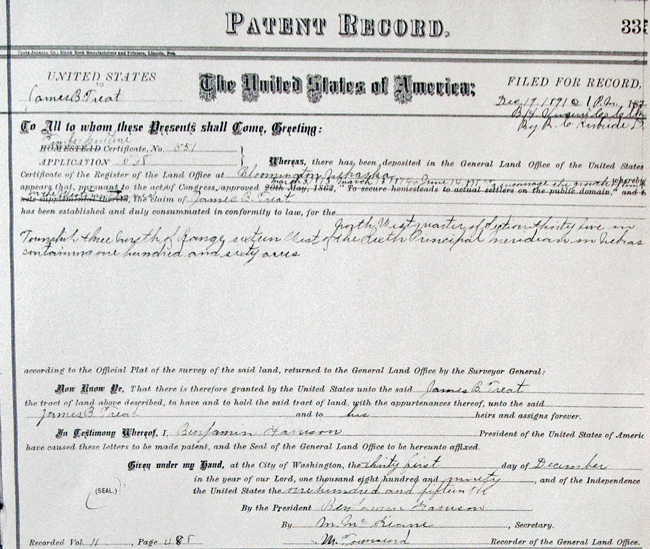 PATENT RECORD.
335
STATE JOURNAL CO., Blank Book Manufacturers and Printers, Lincoln, Neb.
UNITED STATES
TO
James B Treat
The United States of America;
FILED FOR RECORD,
Dec 19, 1910
To All to whom these Presents shall Come, Greeting:
Timber Culture
HOMESTEAD Certificate, No. 551
APPLICATION
Whereas, there has been deposited in the General Land Office of the United States
Certificate of the Register of the Land Office at Bloomington Nebraska, whereby
appears that, pursuant to the act of Congress, approved 20th May, 1862, "To secure homesteads to actual settlers on the public domain," and
the claim of James B. Treat
has been established and duly consummated in conformity to law, for the North West quarter of Section thirty five in
Township three North of Range sixteen West of the Sixth Principal Meridian in Nebras
containing one hundred and sixty acres
according to the Official Plat of the survey of the said land, returned to the General Land Office by the Surveyor General:
Now Know Ye, That there is therefore granted by the United States unto the said James B. Treat
the tract of land above described, to have and to hold the said tract of land, with the appurtenances thereof, unto the said
James B. Treat and to his heirs and assigns forever.
In Testimony Whereof, I, Benjamin Harrison President of the United States of Americ
have caused these letters to be made patent, and the Seal of the General Land Office to be hereunto affixed.
Given under my Hand, at the City of Washington, the thirty first day of December
in the year of our Lord, one thousand eight hundred and ninety, and of the Independence
(SEAL)
the United States the one hundred and fifteenth
By the President Benjamin Harrison
By M. McKean, Secretary.
Recorded Vol. 11, Page 485
Recorder of the General Land Office.